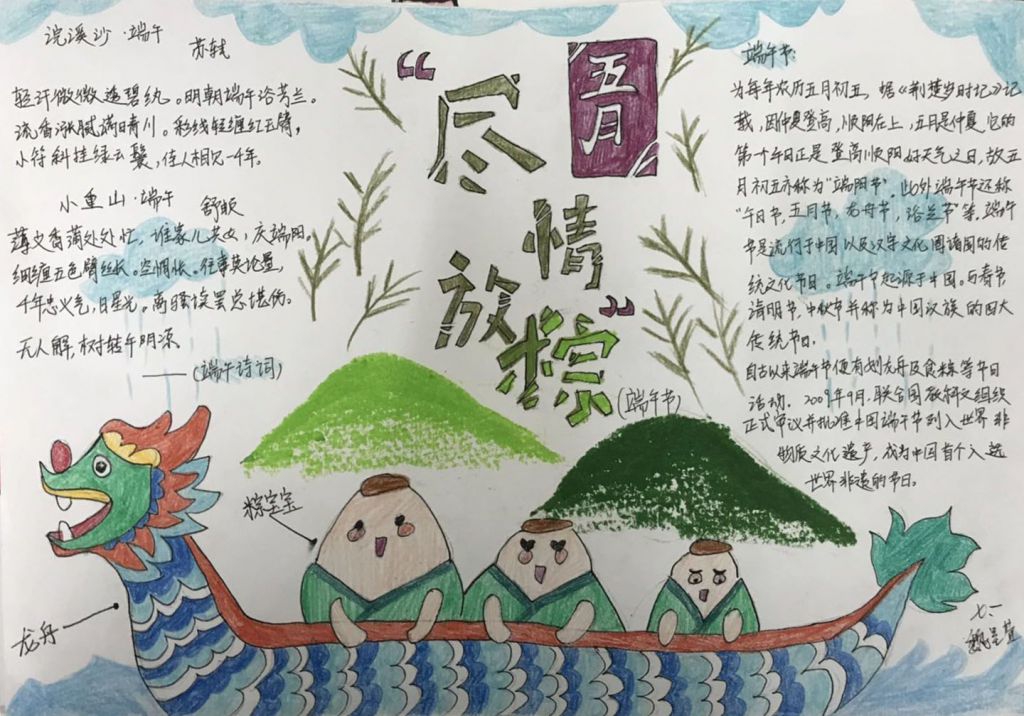 浣溪沙·端午
苏轼
轻汗微微透碧纨。明朝端午浴芳兰。
流香涨腻满晴川。彩线轻缠红玉臂，
小符斜挂绿云鬟，佳人相见一千年。
小重山·端午
舒頔
谁家儿共女，庆端阳。
细缠五色臂丝长。空惆怅。
千年忠义气，日星光。离骚读罢总堪伤。
无人解，树转午阴凉
——（端午诗词）
五月
“尽
情
放
粽”
（端午节）
端午节：
为每年农历五月初五，据《荆楚岁时记》记
载，因仲夏登高，顺阳在上，五月是仲夏它的
第一个午日正是登高顺阳好天气之日，故五
月初五亦称为“端阳节”。此外端午节还称
“午日节，五月节，龙舟节，浴兰节”等，端午
节是流行于中国以及汉字文化圈诸国的传
统文化节日。端午节起源于中国。与春节
清明节，中秋节并称为中国汉族的四大
传统节日。
自古以来端午节便有划龙舟及食粽等节日
活动，2009年9月，联合国教科文组织
正式审议并批准中国端午节列入世界非
物质文化遗产，成为中国首个入选
世界非遗的节日。
粽宝宝
龙舟
七一